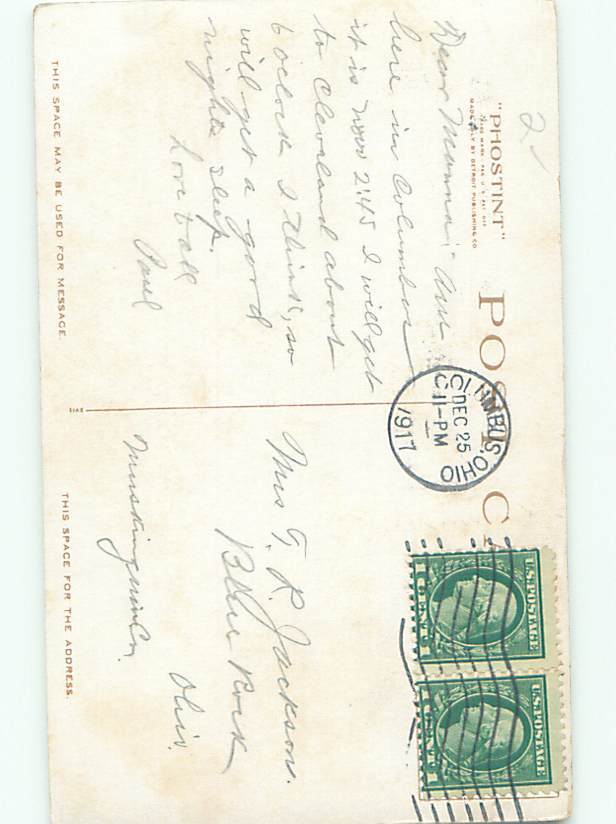 2
"PHOSTINT"
TRADE MARK REG. U.S. PAT. OFF.
MADE ONLY BY DETROIT PUBLISHING CO.
POST CA
Dear Mumma; Am
here in Columbus
it is now 2:45 I will get
to Cleveland about
6 oclock I think, so
will get a good
nights sleep.
Love to all
Paul
THIS SPACE MAY BE USED FOR MESSAGE.
COLUMBUS, OHIO
DEC 25
11-PM
1917
U.S. POSTAGE
1 CENT 1
U.S. POSTAGE
1 CENT 1
Mrs T. R. Jackson.
Blue Rock
Muskingum Co.
Ohio.
THIS SPACE FOR THE ADDRESS.